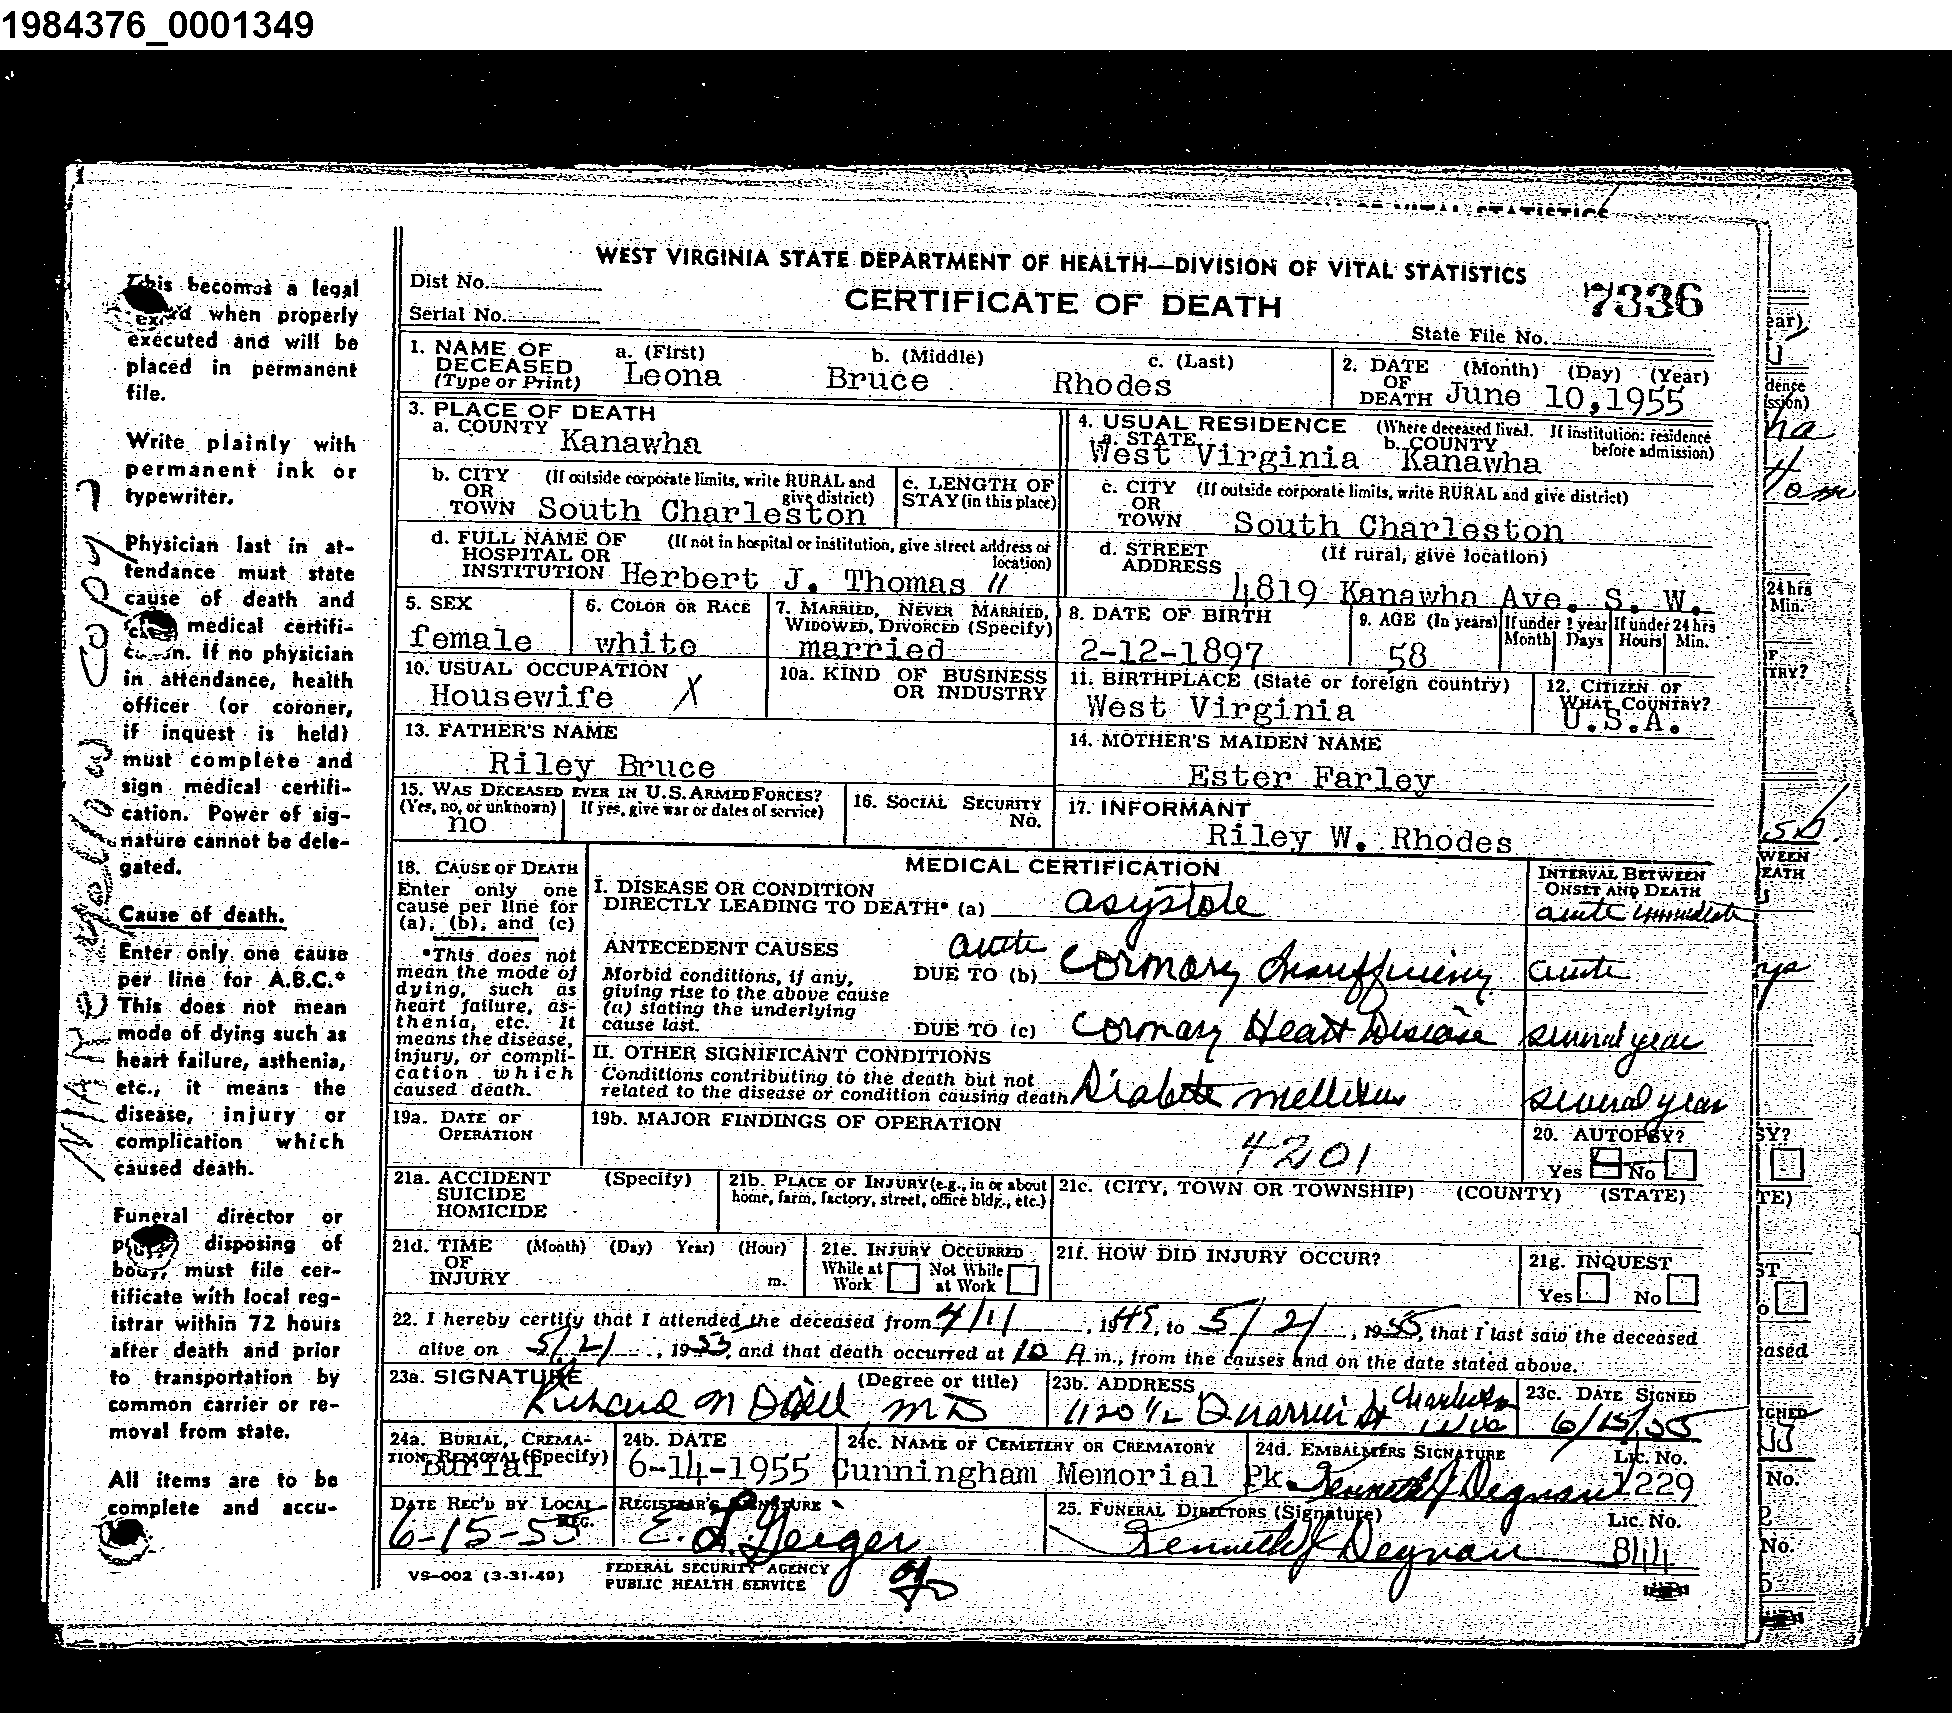 1984376_0001349
WEST VIRGINIA STATE DEPARTMENT OF HEALTH—DIVISION OF VITAL STATISTICS
CERTIFICATE OF DEATH
7336
Dist No.
Serial No.
State File No.
1. NAME OF DECEASED (Type or Print) a. (First) b. (Middle) c. (Last)
Leona Bruce Rhodes
2. DATE OF DEATH (Month) (Day) (Year)
June 10, 1955
3. PLACE OF DEATH
a. COUNTY Kanawha
4. USUAL RESIDENCE (Where deceased lived. If institution: residence before admission)
a. STATE West Virginia b. COUNTY Kanawha
b. CITY OR TOWN (If outside corporate limits, write RURAL and give district)
South Charleston
c. LENGTH OF STAY (in this place)
c. CITY OR TOWN (If outside corporate limits, write RURAL and give district)
South Charleston
d. FULL NAME OF HOSPITAL OR INSTITUTION (If not in hospital or institution, give street address or location)
Herbert J. Thomas "
d. STREET ADDRESS (If rural, give location)
4819 Kanawha Ave. S. W.
5. SEX
female
6. COLOR OR RACE
white
7. MARRIED, NEVER MARRIED, WIDOWED, DIVORCED (Specify)
married
8. DATE OF BIRTH
2-12-1897
9. AGE (In years)
58
If under 1 year Month Days
If under 24 hrs Hours Min.
10. USUAL OCCUPATION
Housewife X
10a. KIND OF BUSINESS OR INDUSTRY
11. BIRTHPLACE (State or foreign country)
West Virginia
12. CITIZEN OF WHAT COUNTRY?
U.S.A.
13. FATHER'S NAME
Riley Bruce
14. MOTHER'S MAIDEN NAME
Ester Farley
15. WAS DECEASED EVER IN U.S. ARMED FORCES?
(Yes, no, or unknown) If yes, give war or dates of service)
no
16. SOCIAL SECURITY No.
17. INFORMANT
Riley W. Rhodes
18. CAUSE OF DEATH
Enter only one cause per line for (a), (b), and (c)
*This does not mean the mode of dying, such as heart failure, asthenia, etc. It means the disease, injury, or complication which caused death.
MEDICAL CERTIFICATION
INTERVAL BETWEEN ONSET AND DEATH
I. DISEASE OR CONDITION DIRECTLY LEADING TO DEATH* (a) asystole acute immediate
ANTECEDENT CAUSES
Morbid conditions, if any, giving rise to the above cause (a) stating the underlying cause last.
DUE TO (b) acute Coronary Insufficiency acute
DUE TO (c) Coronary Heart Disease several year
II. OTHER SIGNIFICANT CONDITIONS
Conditions contributing to the death but not related to the disease or condition causing death
Diabete mellitus several year
19a. DATE OF OPERATION
19b. MAJOR FINDINGS OF OPERATION
4201
20. AUTOPSY?
Yes No
21a. ACCIDENT SUICIDE HOMICIDE (Specify)
21b. PLACE OF INJURY (e.g., in or about home, farm, factory, street, office bldg., etc.)
21c. (CITY, TOWN OR TOWNSHIP) (COUNTY) (STATE)
21d. TIME OF INJURY (Month) (Day) Year) (Hour) m.
21e. INJURY OCCURRED
While at Work Not While at Work
21f. HOW DID INJURY OCCUR?
21g. INQUEST
Yes No
22. I hereby certify that I attended the deceased from 4/11, 1945, to 5/21, 1955, that I last saw the deceased
alive on 5/21, 1955, and that death occurred at 10 A m., from the causes and on the date stated above.
23a. SIGNATURE (Degree or title)
M D
23b. ADDRESS
1120 1/2 Quarrier St Charleston W Va
23c. DATE SIGNED
6/15/55
24a. BURIAL, CREMATION, REMOVAL (Specify)
Burial
24b. DATE
6-14-1955
24c. NAME OF CEMETERY OR CREMATORY
Cunningham Memorial Pk.
24d. EMBALMERS SIGNATURE Lic. No.
Kenneth J Degnan 1229
DATE REC'D BY LOCAL REG.
6-15-55
REGISTRAR'S SIGNATURE
E. L. Geiger
25. FUNERAL DIRECTORS (Signature) Lic. No.
Kenneth J Degnan 844
VS-002 (3-31-49)
FEDERAL SECURITY AGENCY
PUBLIC HEALTH SERVICE
This becomes a legal
record when properly
executed and will be
placed in permanent
file.
Write plainly with
permanent ink or
typewriter.
Physician last in at-
tendance must state
cause of death and
sign medical certifi-
cation. If no physician
in attendance, health
officer (or coroner,
if inquest is held)
must complete and
sign medical certifi-
cation. Power of sig-
nature cannot be dele-
gated.
Cause of death.
Enter only one cause
per line for A.B.C.*
This does not mean
mode of dying such as
heart failure, asthenia,
etc., it means the
disease, injury or
complication which
caused death.
Funeral director or
disposing of
body, must file cer-
tificate with local reg-
istrar within 72 hours
after death and prior
to transportation by
common carrier or re-
moval from state.
All items are to be
complete and accu-